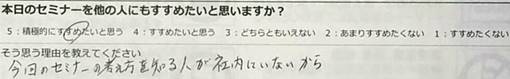 本日のセミナーを他の人にもすすめたいと思いますか？
5：積極的にすすめたいと思う 4：すすめたいと思う 3：どちらともいえない 2：あまりすすめたくない 1：すすめたくない
そう思う理由を教えてください
今回のセミナーの考え方を知る人が社内にいないから